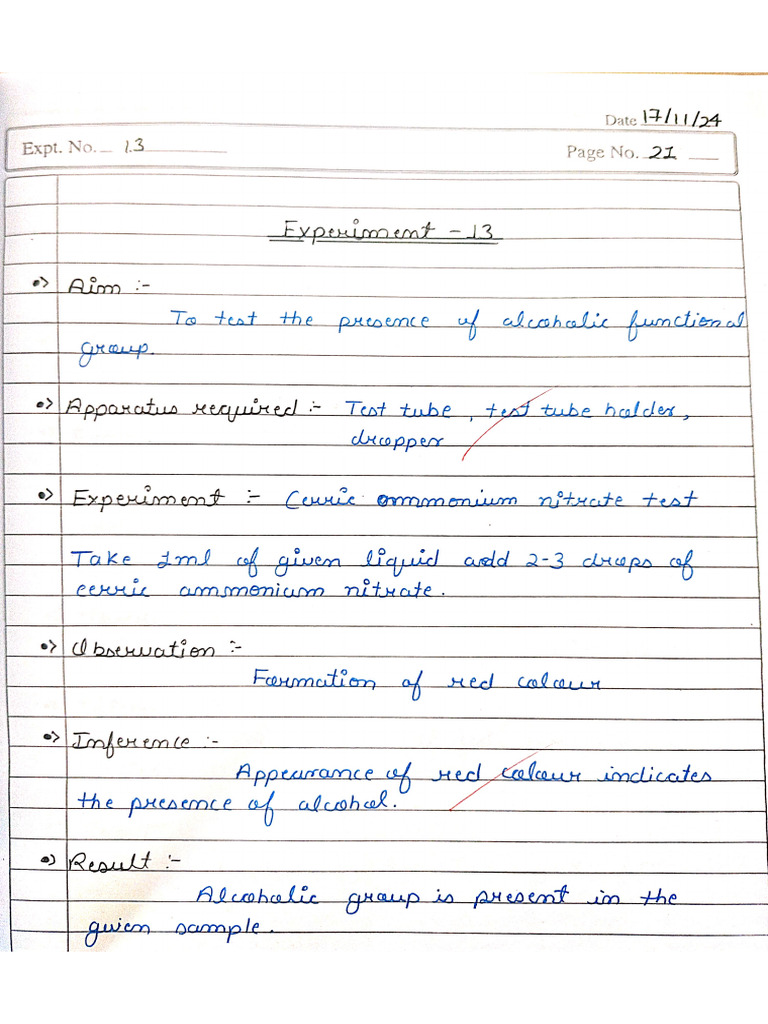 Date 17/11/24
Expt. No. 13
Page No. 21
Experiment - 13
•> Aim :-
To test the presence of alcoholic functional
group.
•> Apparatus required :- Test tube, test tube holder,
dropper
•> Experiment :- Cerric ammonium nitrate test
Take 1ml of given liquid add 2-3 drops of
cerric ammonium nitrate.
•> Observation :-
Formation of red colour
•> Inference :-
Appearance of red colour indicates
the presence of alcohol.
•> Result :-
Alcoholic group is present in the
given sample.